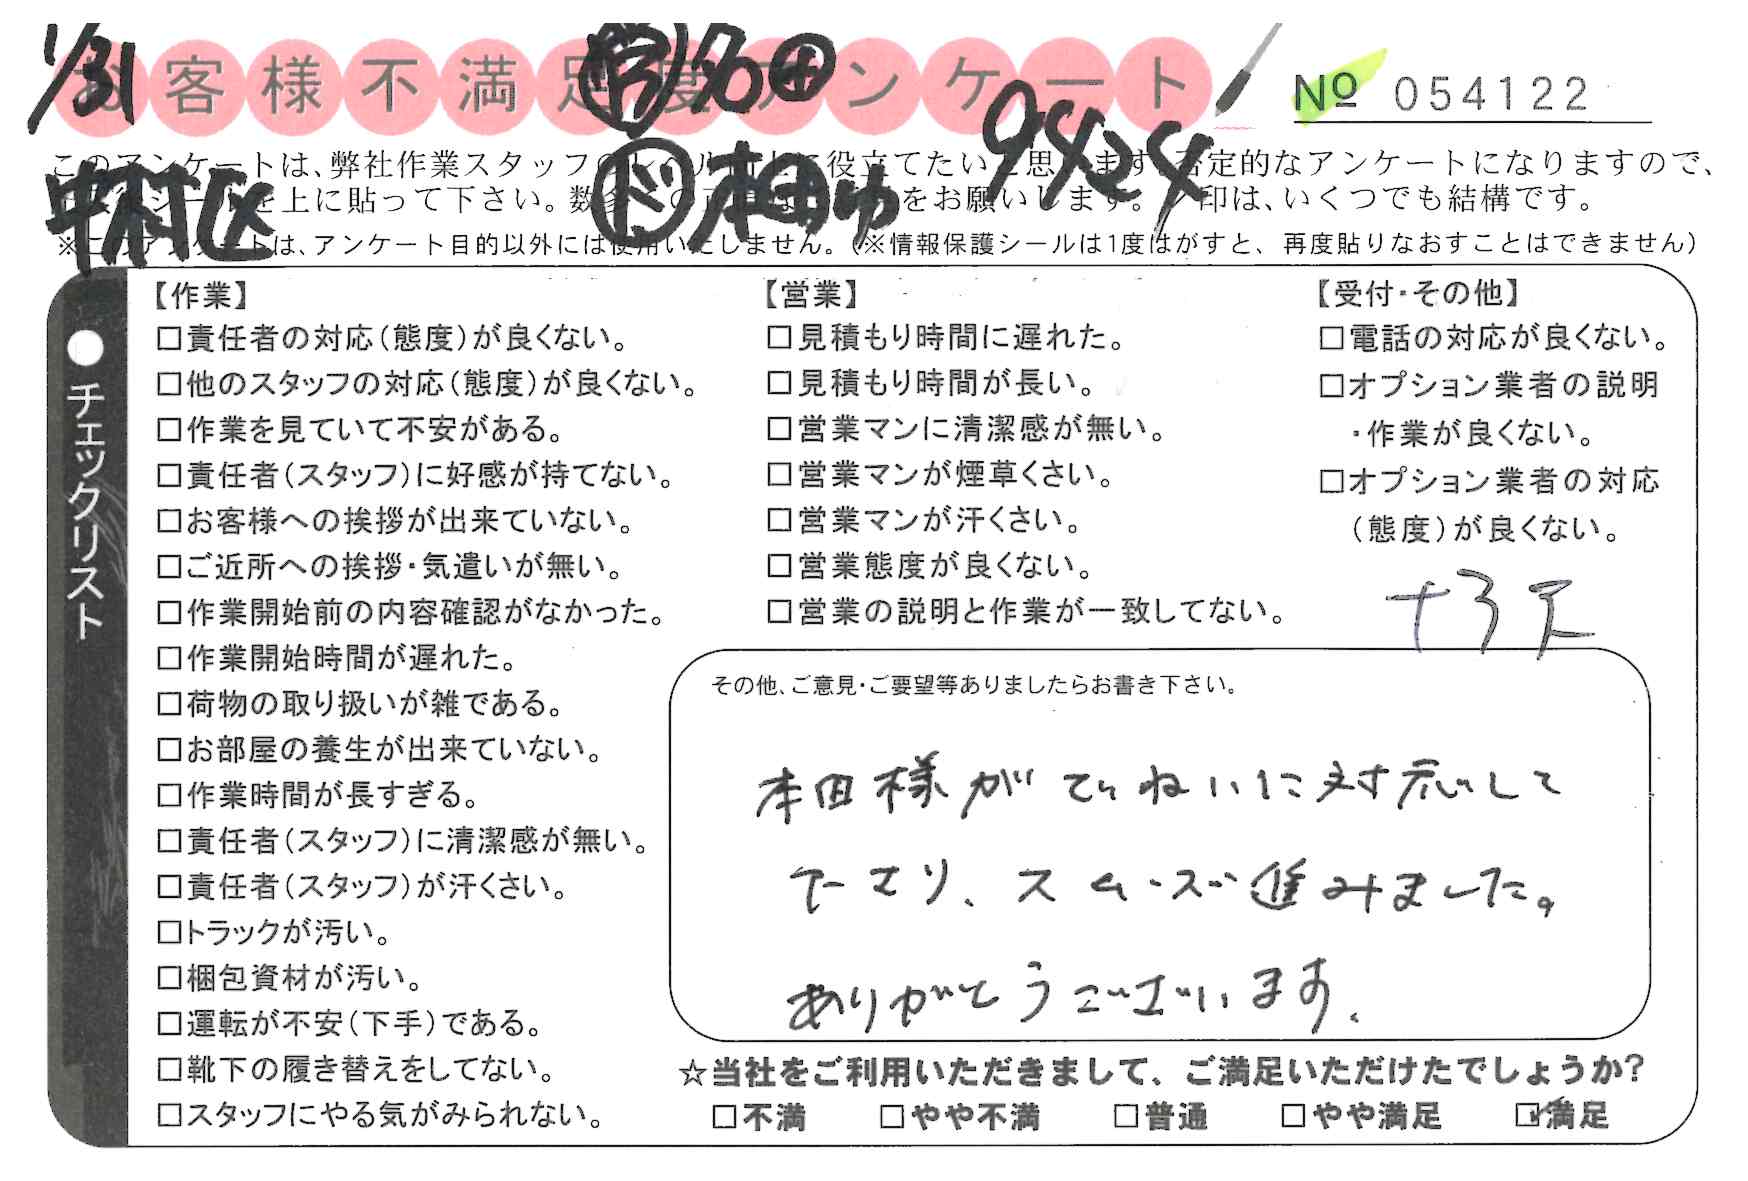 1/31
お客様不満足度アンケート
No 054122
9424
中村区
このアンケートは、弊社作業スタッフのレベル向上に役立てたいと思います。否定的なアンケートになりますので、
シールを上に貼って下さい。数多くの をお願いします。レ印は、いくつでも結構です。
※このアンケートは、アンケート目的以外には使用いたしません。(※情報保護シールは1度はがすと、再度貼りなおすことはできません)
●チェックリスト
【作業】
□責任者の対応(態度)が良くない。
□他のスタッフの対応(態度)が良くない。
□作業を見ていて不安がある。
□責任者(スタッフ)に好感が持てない。
□お客様への挨拶が出来ていない。
□ご近所への挨拶・気遣いが無い。
□作業開始前の内容確認がなかった。
□作業開始時間が遅れた。
□荷物の取り扱いが雑である。
□お部屋の養生が出来ていない。
□作業時間が長すぎる。
□責任者(スタッフ)に清潔感が無い。
□責任者(スタッフ)が汗くさい。
□トラックが汚い。
□梱包資材が汚い。
□運転が不安(下手)である。
□靴下の履き替えをしてない。
□スタッフにやる気がみられない。
【営業】
□見積もり時間に遅れた。
□見積もり時間が長い。
□営業マンに清潔感が無い。
□営業マンが煙草くさい。
□営業マンが汗くさい。
□営業態度が良くない。
□営業の説明と作業が一致してない。
【受付・その他】
□電話の対応が良くない。
□オプション業者の説明
・作業が良くない。
□オプション業者の対応
(態度)が良くない。
その他、ご意見・ご要望等ありましたらお書き下さい。
本田様がていねいに対応して
下さり、スムーズ進みました。
ありがとうございます、
☆当社をご利用いただきまして、ご満足いただけたでしょうか?
□不満 □やや不満 □普通 □やや満足 ☑満足